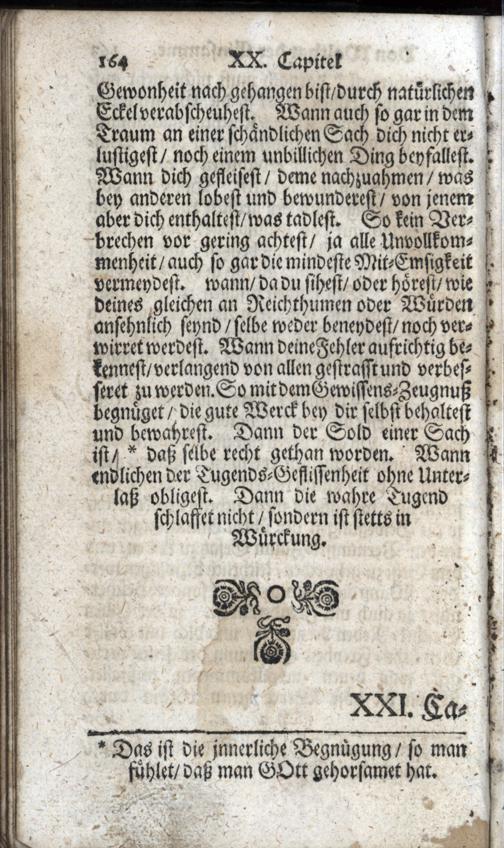 164 XX. Capitel
Gewonheit nach gehangen bist/durch natürlichen
Eckel verabscheuhest. Wann auch so gar in dem
Traum an einer schändlichen Sach dich nicht er-
lustigest/ noch einem unbillichen Ding beyfallest.
Wann dich gefleisest/ deme nachzuahmen/ was
bey anderen lobest und bewunderest/ von jenem
aber dich enthaltest/was tadlest. So kein Ver-
brechen vor gering achtest/ ja alle Unvollkom-
menheit/ auch so gar die mindeste Mit-Emsigkeit
vermeydest. wann/ da du sihest/ oder hörest/ wie
deines gleichen an Reichthumen oder Würden
ansehnlich seynd/ selbe weder beneydest/ noch ver-
wirret werdest. Wann deine Fehler aufrichtig be-
kennest/verlangend von allen gestrafft und verbes-
seret zu werden. So mit dem Gewissens-Zeugnuß
begnüget/ die gute Werck bey dir selbst behaltest
und bewahrest. Dann der Sold einer Sach
ist/ * daß selbe recht gethan worden. Wann
endlichen der Tugends-Geflissenheit ohne Unter-
laß obligest. Dann die wahre Tugend
schlaffet nicht/ sondern ist stetts in
Würckung.
XXI. Ca-
* Das ist die jnnerliche Begnügung/ so man
fühlet/ daß man GOtt gehorsamet hat.